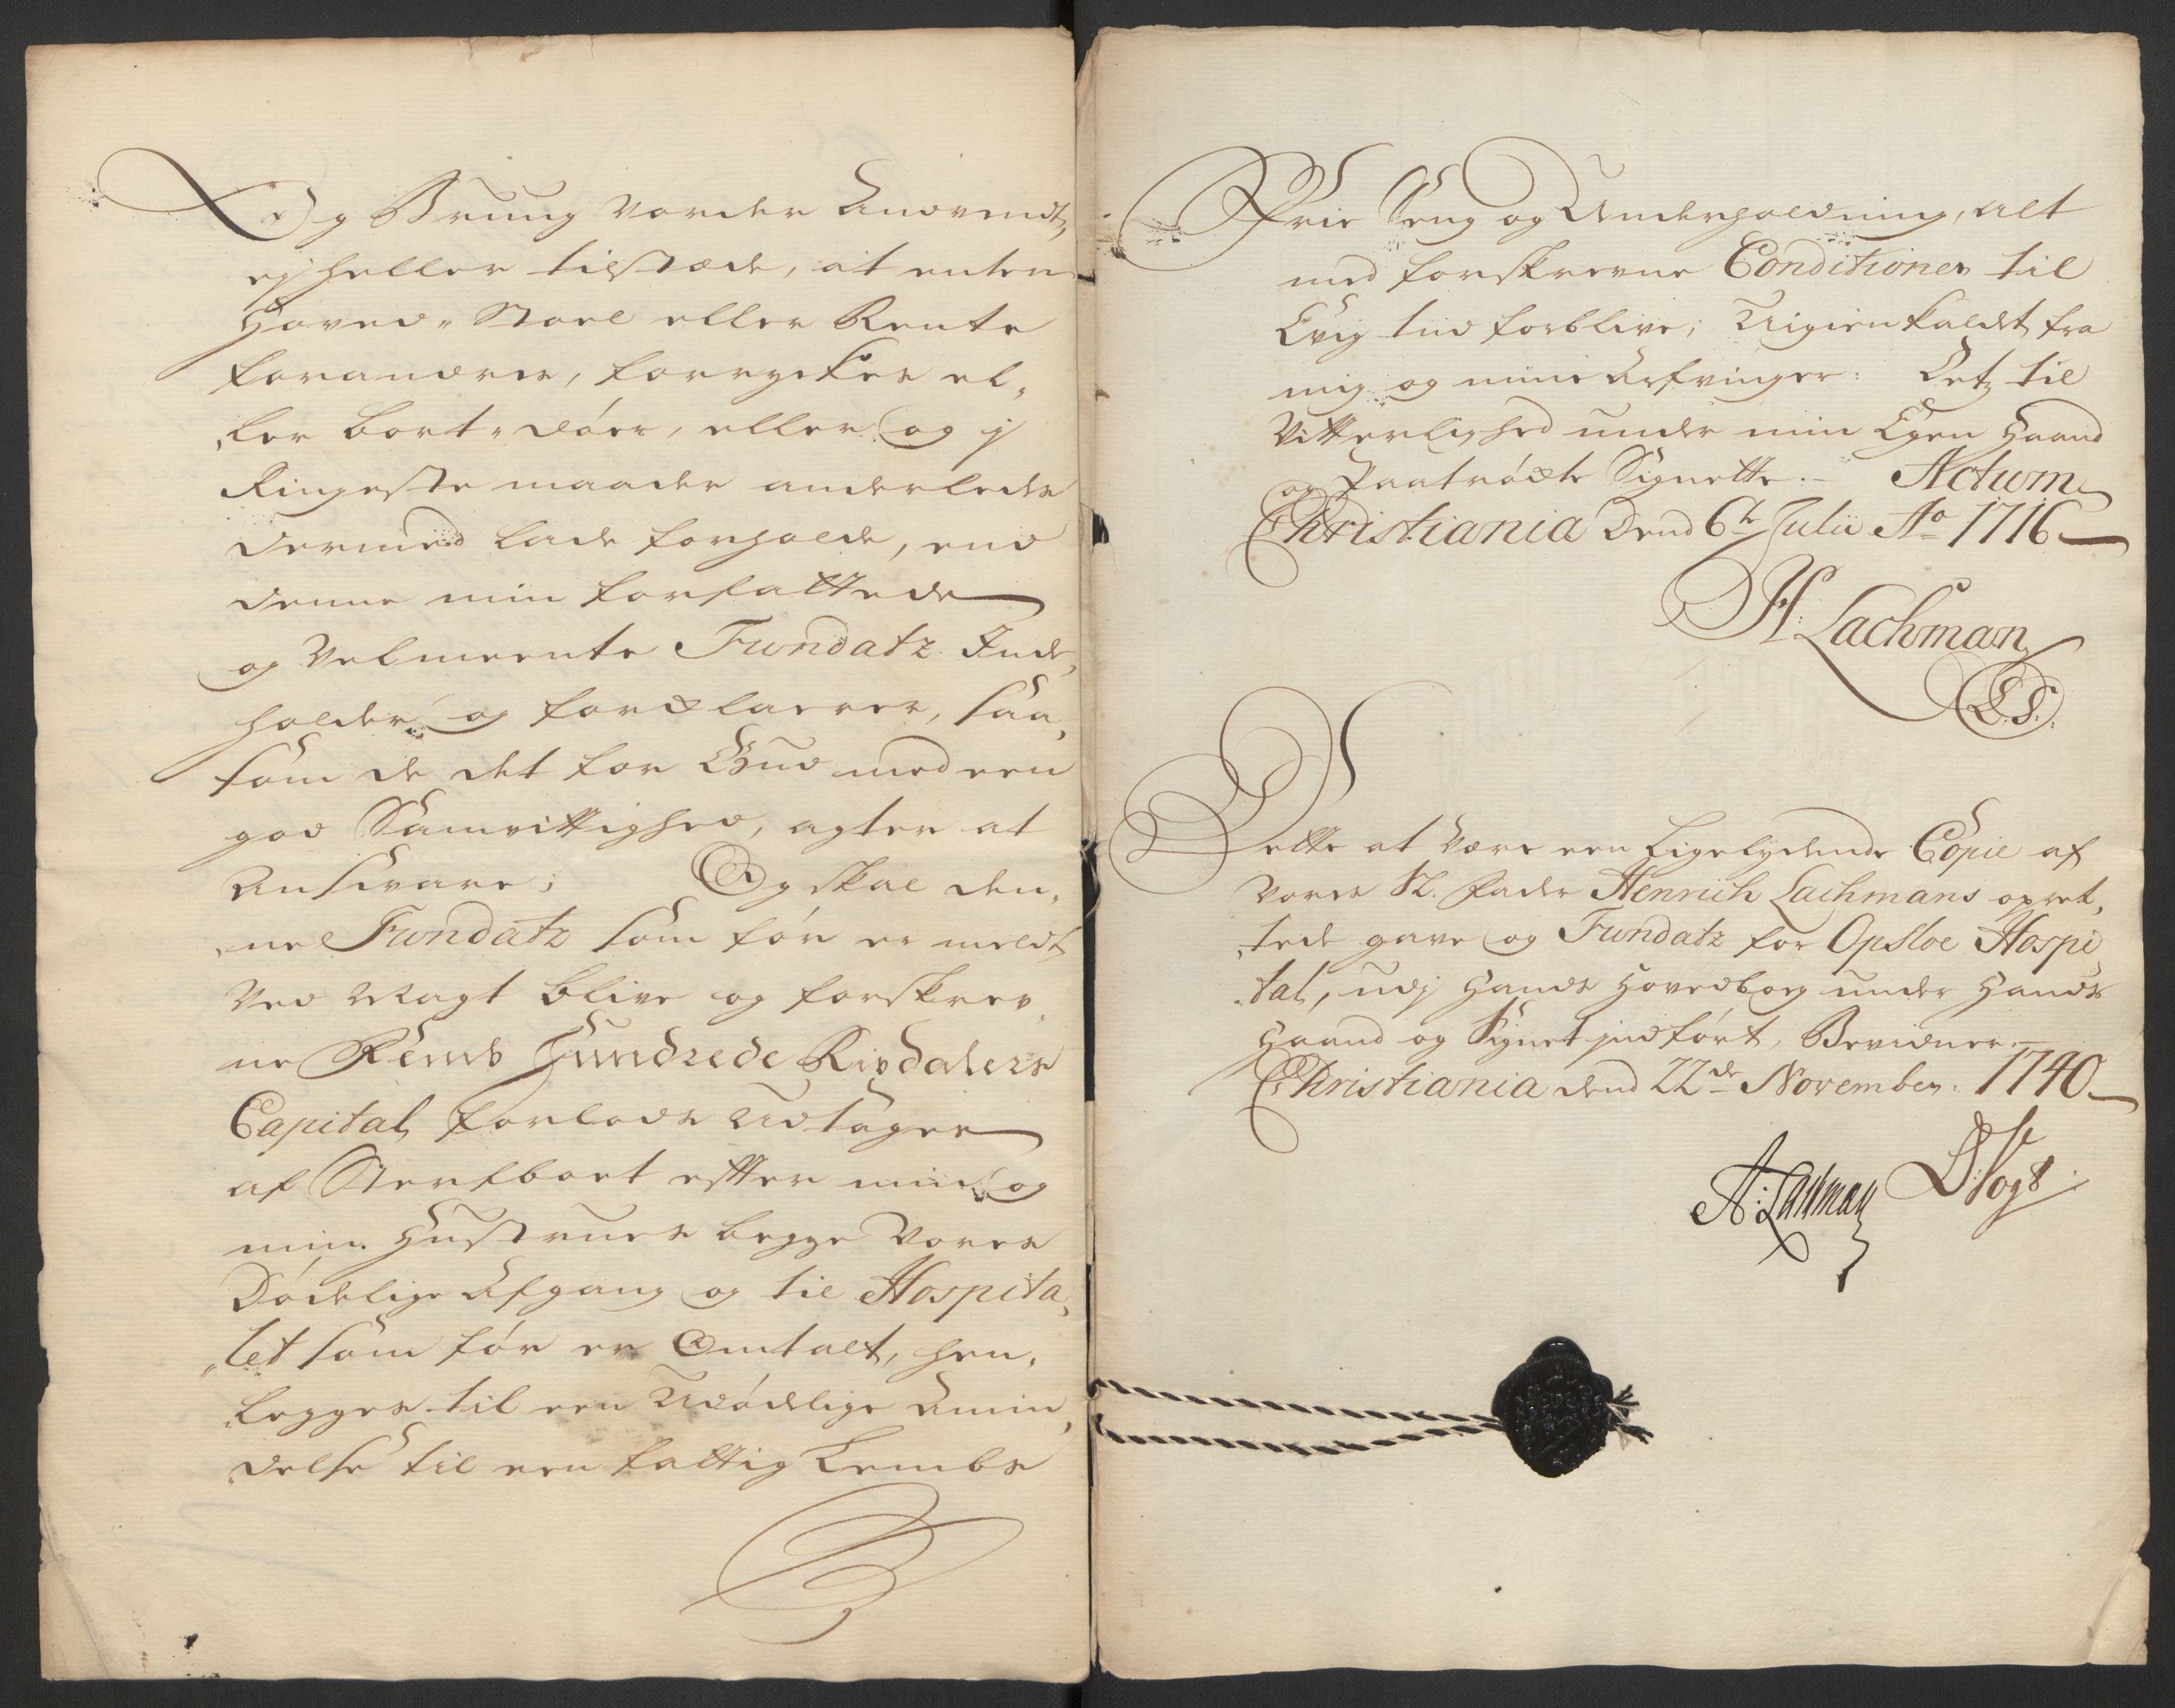 Og Brung vorder Andvendt,
ej heller tilstæde, at enten
Hoved-Stoel eller Rente
forandres, forryckes el-
ler bort-döer, eller og j
Ringeste maader anderledes
dermed lade forholde, end
denne min forfattede
og Velmeente Fundatz Inde-
holder og forklaerer, saa-
som de det for Gud med een
god Samvittighed, agter at
Ansvare; Og skal den-
ne Fundatz som för er meldt
Ved Magt blive og forskrev-
ne Femb Hundrede Rixdalers
Capital forlods Udtages
af Sterfboet efter min og
min Hustrues begge Vores
Dödelige Afgang og til Hospita-
let som för er Omtalt, hen-
legges til een Udödelige Amin-
delse til een fattig Lembs
Frie Seng og Underholdning, alt
med forskrevne Conditioner til
Evig tid forblive; Uigienkaldet fra
mig og mine Arfvinger: Detz til
Vitterlighed under min Egen Haand
og Paatröckte Signette. – Actum
Christiania Dend 6te Julii Ao 1716
H: Lachman
L.S.
Dette at være een Ligelydende Copie af
vores Sl. Fader Henrich Lachmans opret-
tede gave og Fundatz for Opsloe Hospi-
tal, udj Hands Hovedbog under Hands
Haand og Signet indfört, Bevidner.
Christiania dend 22de November 1740
A: Lachman D: Vogt